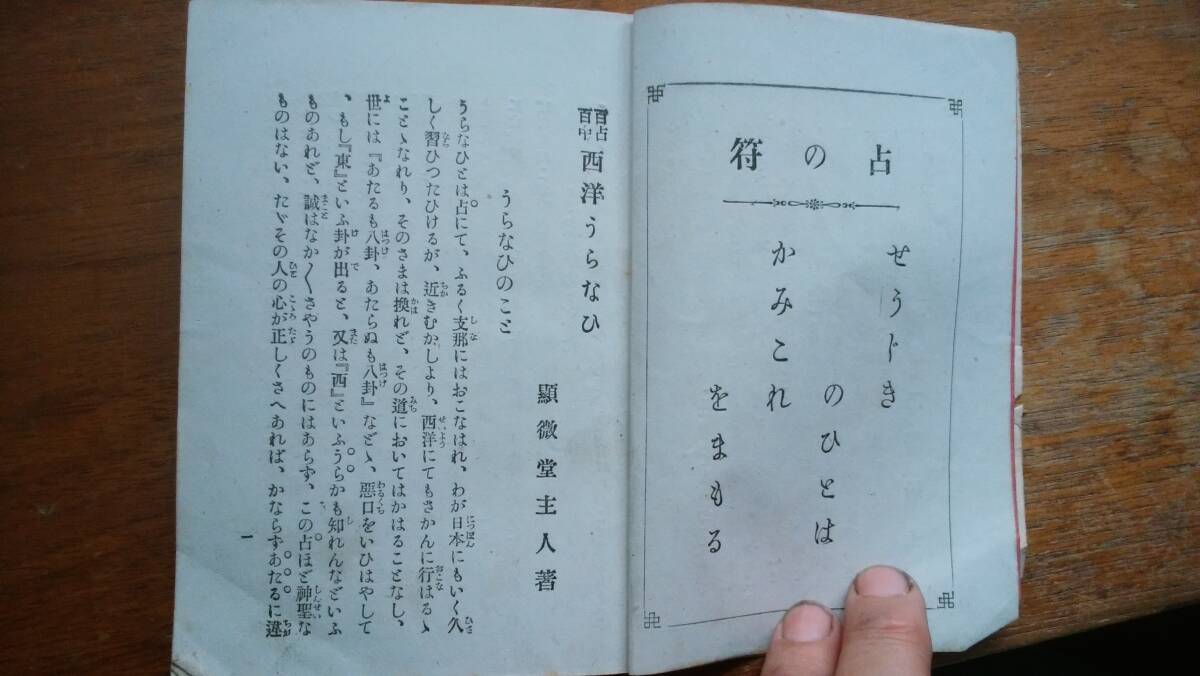 占の符
せうじき
のひとは
かみこれ
をまもる
百占百中 西洋うらなひ
顯微堂主人著
うらなひのこと
うらなひとは占にて、ふるく支那にはおこなはれ、わが日本にもいく久
しく習ひつたひけるが、近きむかしより、西洋にてもさかんに行はるゝ
ことゝなれり、そのさまは換れど、その道においてはかはることなし、
世には『あたるも八卦、あたらぬも八卦』などゝ、惡口をいひはやして
、もし『東』といふ卦が出ると、又は『西』といふうらかも知れんなどいふ
ものあれど、誠はなか〱さやうのものにはあらず、この占ほど神聖な
ものはない、たゞその人の心が正しくさへあれば、かならずあたるに違
一